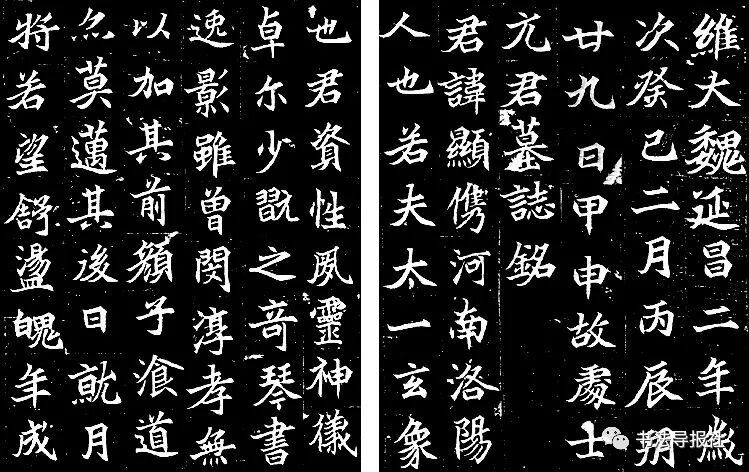 維大魏延昌二年歲
次癸巳二月丙辰朔
廿九日甲申故處士
元君墓誌銘
君諱顯儁河南洛陽
人也若夫太一玄象
也君資性夙靈神儀
卓尔少翫之奇琴書
逸影雖曾閔淳孝無
以加其前顏子湌道
尒莫邁其後日就月
將若望舒盪魄年成
书法导报社